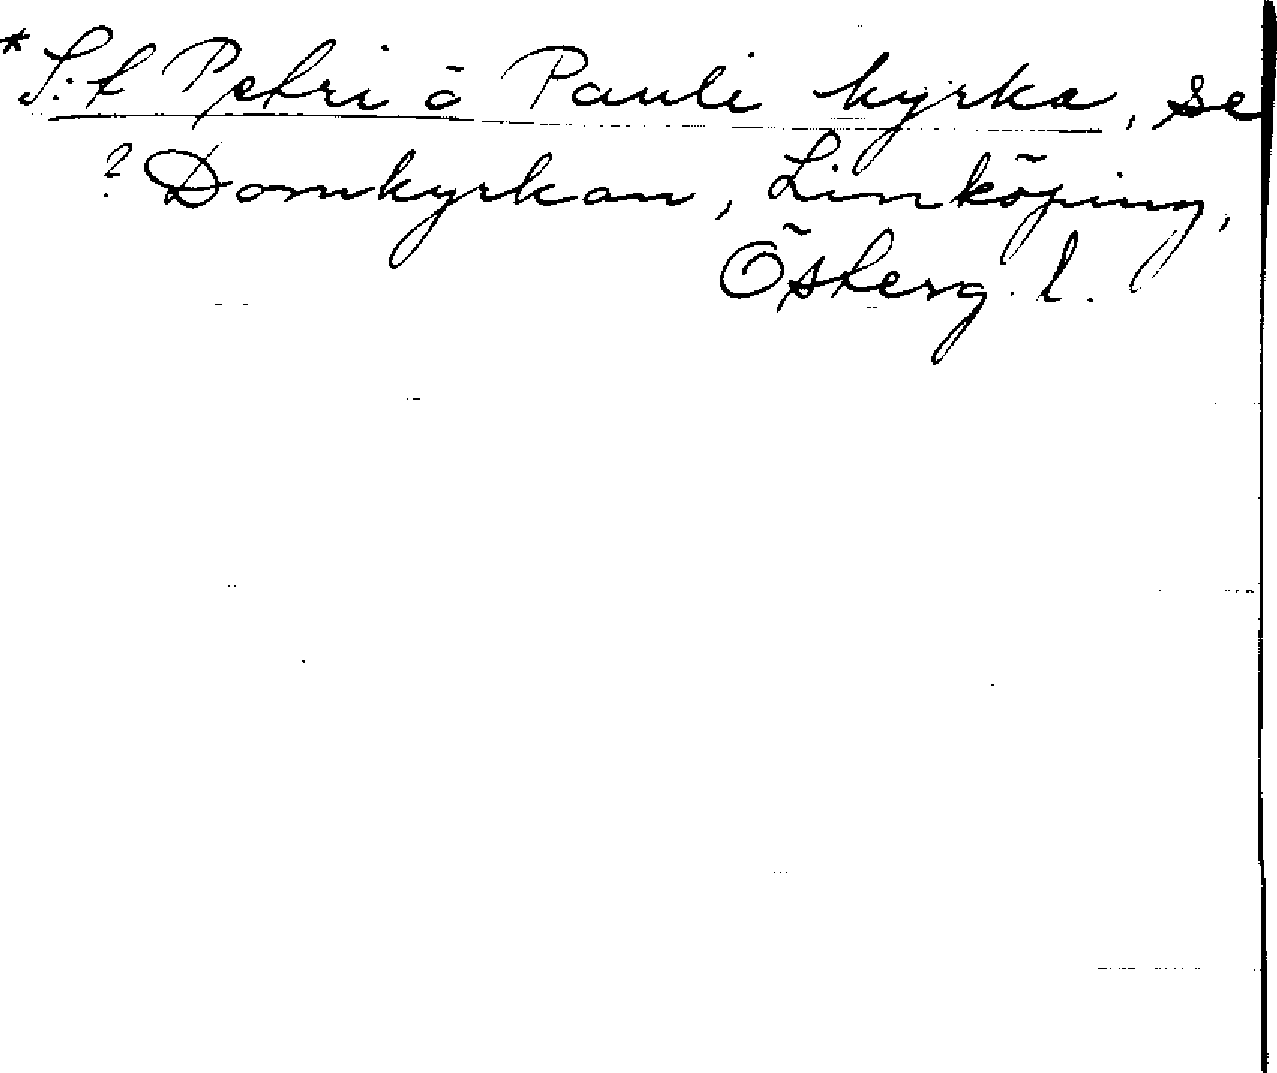 * S:t Petri o Pauli kyrka, se
? Domkyrkan, Linköping,
Österg. l.